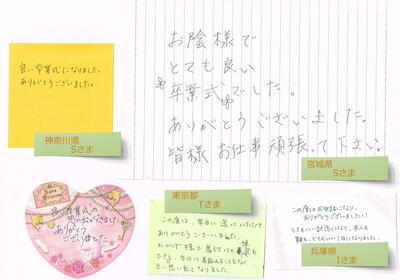 良い卒業式になりました。
ありがとうございました。
神奈川県
Sさま
お陰様で
とても良い
卒業式でした。
ありがとうございました。
皆様 お仕事頑張って下さい。
宮城県
Sさま
良い卒業式の
思い出ができました
ありがとう
ございました
東京都
Tさま
この度は、早日に送っていただいて
ありがとうございました。
おかげ様で着付けの練習も
でき、当日は着崩れることもなく
良い思い出となりました。
この度はお世話になり、
ありがとうございました!
とてもいいお色になり、本人も
親も、とてもいい1日になりました
兵庫県
Iさま